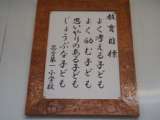 教育目標
よく考える子ども
よく励む子ども
思いやりのある子ども
じょうぶな子ども